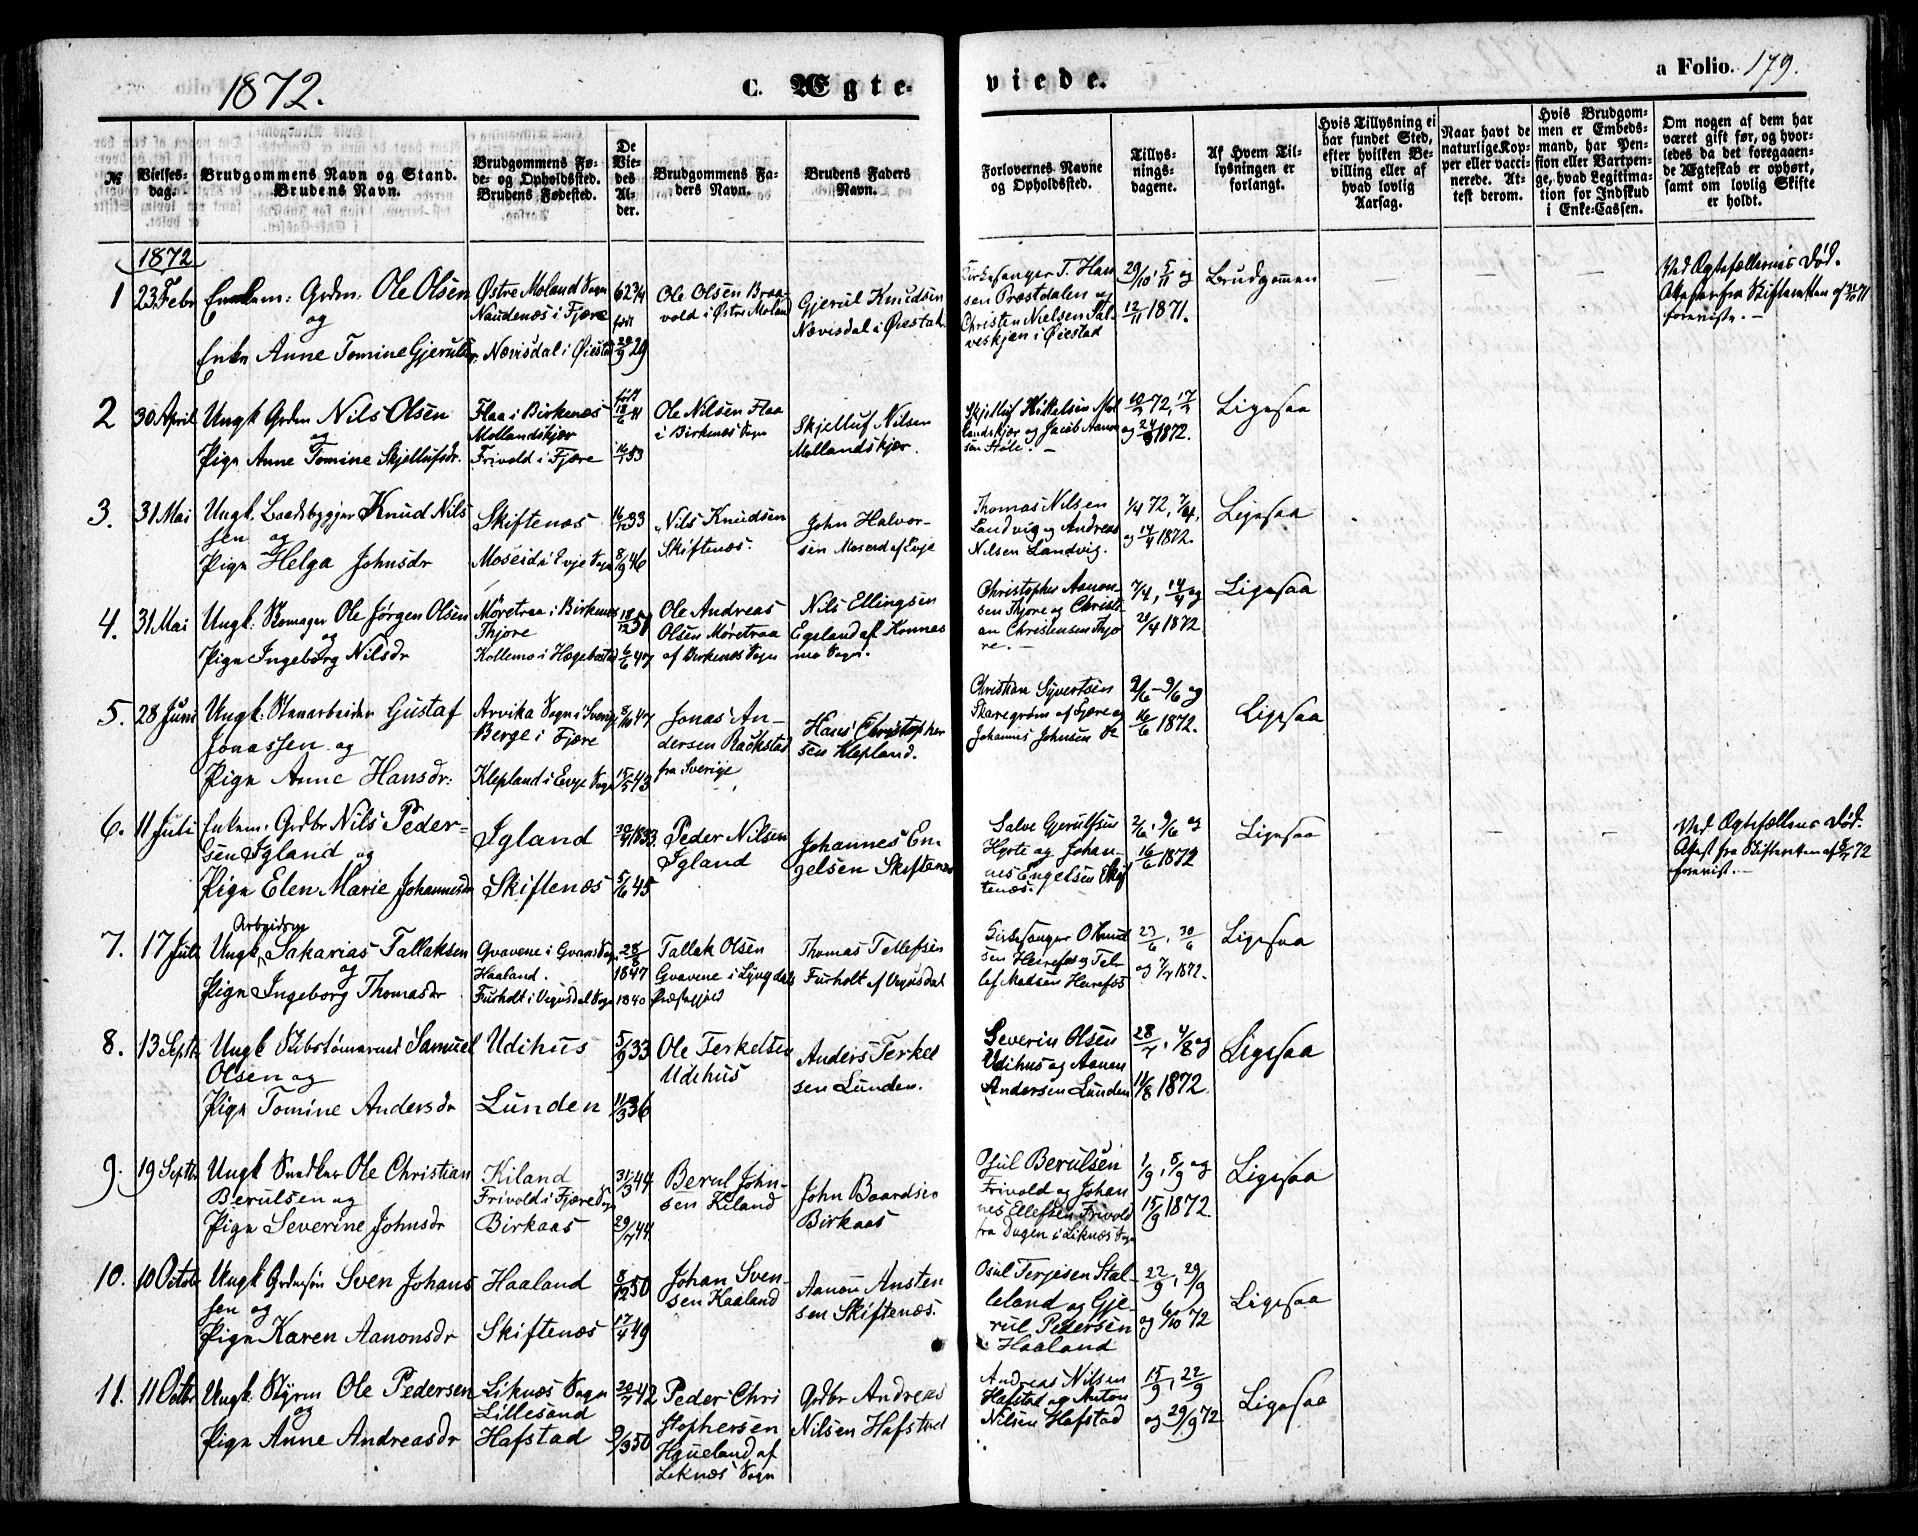 1872.
C. Ægte-
viede.
a Folio. 179.
№
Vielses-
dag.
Brudgommens Navn og Stand.
Brudens Navn.
Brudgommens Fø-
de- og Opholdssted.
Brudens Fødested.
De
Vie-
des
Al-
der.
Brudgommens Fa-
ders Navn.
Brudens Faders
Navn.
Forlovernes Navne
og Opholdssted.
Tillys-
nings-
dagene.
Af Hvem Til-
lysningen er
forlangt.
Hvis Tillysning ei
har fundet Sted,
efter hvilken Be-
villing eller af
hvad lovlig
Aarsag.
Naar havt de
naturlige Kop-
per eller vacci-
nerede. At-
test derom.
Hvis Brudgom-
men er Embeds-
mand, har Pen-
sion eller Vartpen-
ge, hvad Legitima-
tion for Indskud
i Enke-Cassen.
Om nogen af dem har
været gift før, og hvor-
ledes da det foregaaen-
de Ægteskab er ophørt,
samt om lovlig Skifte
er holdt.
1872
1 23 Febr
Enkem: Grdm: Ole Olsen
og
Enke Anne Tomine Gjerulsdr
Østre Moland Sogn
Naudenæs i Fjære
Nævisdal i Øiestad
62 3/4
født
20/9 29
Ole Olsen Braa-
vold i Østre Moland
Gjerul Knudsen
Nævisdal i Øiestad
Kirkesanger T. Han
sen Præstdalen og
Christen Nielsen Sal-
veskjæn i Øiestad
29/10, 5/11 og
12/11 1871.
Brudgommen
Ved Ægtefællernes Død.
foreviste. -
2 30 April
Ungk Grdm Nils Olsen
og
Pige Anne Tomine Skjellufsdr.
Flaa i Birkenæs
Mollandskjær
Frivold i Fjære
født
18/6 41
16/1 53
Ole Nilsen Flaa
i Birkenæs Sogn
Skjelluf Nilsen
Mollandskjær.
Skjelluf Mikelsen Mol
landskjær og Jacob Aanon
sen Støle. -
10/3 72, 17/3
og 24/3 1872.
Ligesaa
3. 31 Mai
Ungk. Baadsbygger Knud Nils
sen og
Pige Helga Johnsdr
Skiftenæs
Moseid i Evje Sogn
16/1 33
8/9 46
Nils Knudsen
Skiftenæs.
John Halvor-
sen Moseid af Evje
Thomas Nilsen
Landvig og Andreas
Nilsen Landvig.
1/4 72, 7/4,
og 14/4 1872.
Ligesaa
4. 31 Mai
Ungk. Skomager Ole Jørgen Olsen
og
Pige Ingeborg Nilsdr
Møretraa i Birkenes
Thjore
Kollemo i Hægebostad
18/12 51
6/6 47
Ole Andreas
Olsen Møretraa
af Birkenæs Sogn
Nils Ellingsen
Egeland af Konnes
mo Sogn.
Christopher Aanon-
sen Thjore og Christi-
an Christensen Thjo
re. -
7/4, 14/4 og
21/4 1872
Ligesaa
5. 28 Juni
Ungk: Stenarbeider Gustaf
Jonassen og
Pige Anne Hansdr:
Arvika Sogn i Sverige
Berge i Fjære
Klepland i Evje Sogn
8/10 47
15/5 43
Jonas An-
dersen Rackstad
fra Sverige
Hans Christopher
sen Klepland.
Christian Syvertsen
Skaregrøm af Fjære og
Johannes Johnsen
2/6 - 9/6 og
16/6 1872.
Ligesaa
6. 11 Juli
Enkem. Grdbr Nils Peder-
sen Igland og
Pige Elen Marie Johannesdr
Igland
Skiftenæs
20/4 1833.
5/6 45
Peder Nilsen
Igland
Johannes En
gelsen Skiftenæs
Salve Gjerulfsen
Hørte og Johan-
nes Engelsen Skif
tenæs.
2/6, 9/6 og
16/6 1872
Ligesaa
Ved Ægtefællens Død.
forevist. -
7. 17 Juli
Arbeidsm
Ungk. Sakarias Tallaksen
og
Pige Ingeborg Thomasdr
Gvavene i Gvaas Sogn
Haaland.
Furholt i Vegusdal Sogn
28/8
1847
1840
Tallak Olsen
Gvavene i Lyngdals
Præstegjeld
Thomas Tellefsen
Furholt af Vegusdal
Kirkesanger O Knud
sen Heirefos og Tel-
lef Madsen Heirefos
23/6, 30/6
og 7/7 1872.
Ligesaa
8. 13 Septb
Ungk Skibstømmermd Samuel
Olsen og
Pige Tomine Andersdr
Udihus
Lunden
5/9 33
11/3 36
Ole Terkelsen
Udihus
Anders Terkel
sen Lunden.
Severin Olsen
Udihus og Aanen
Andersen Lunden
28/7, 4/8 og
11/8 1872
Ligesaa
9. 19 Septb
Ungk Snedker Ole Christian
Berulsen og
Pige Severine Johnsdr
Kiland
Frivold i Fjære Sogn
Birkaas
31/3 44
29/7 44
Berul John-
sen Kiland
John Baardsen
Birkaas
Osul Berulsen
Frivold og Johan
nes Ellefsen Frivold
fra Dugen i Liknæs Sogn
1/9, 8/9 og
15/9 1872
Ligesaa
10. 10 Octob
Ungk Grdmssøn Sven Johans
sen og
Pige Karen Aanonsdr
Haaland
Skiftenæs
8/12 50
17/4 49
Johan Sven-
sen Haaland
Aanon Ansten
sen Skiftenæs.
Osul Terjesen Stal-
leland og Gje-
rul Pedersen
Haaland
22/9, 29/9
og 6/10 72
Ligesaa
11. 11 Octbr
Ungk. Styrm Ole Pedersen
og
Pige Anne Andreasdr
Liknæs Sogn
Lillesand
Hafstad
20/7 42
9/3 50
Peder Chri
stophersen
Haueland af
Liknæs Sogn
Grdbr Andreas
Nilsen Hafstad
Andreas Nilsen
Hafstad og Anton
Nilsen Hafstad
15/9, 22/9
og 29/9 72
Ligesaa